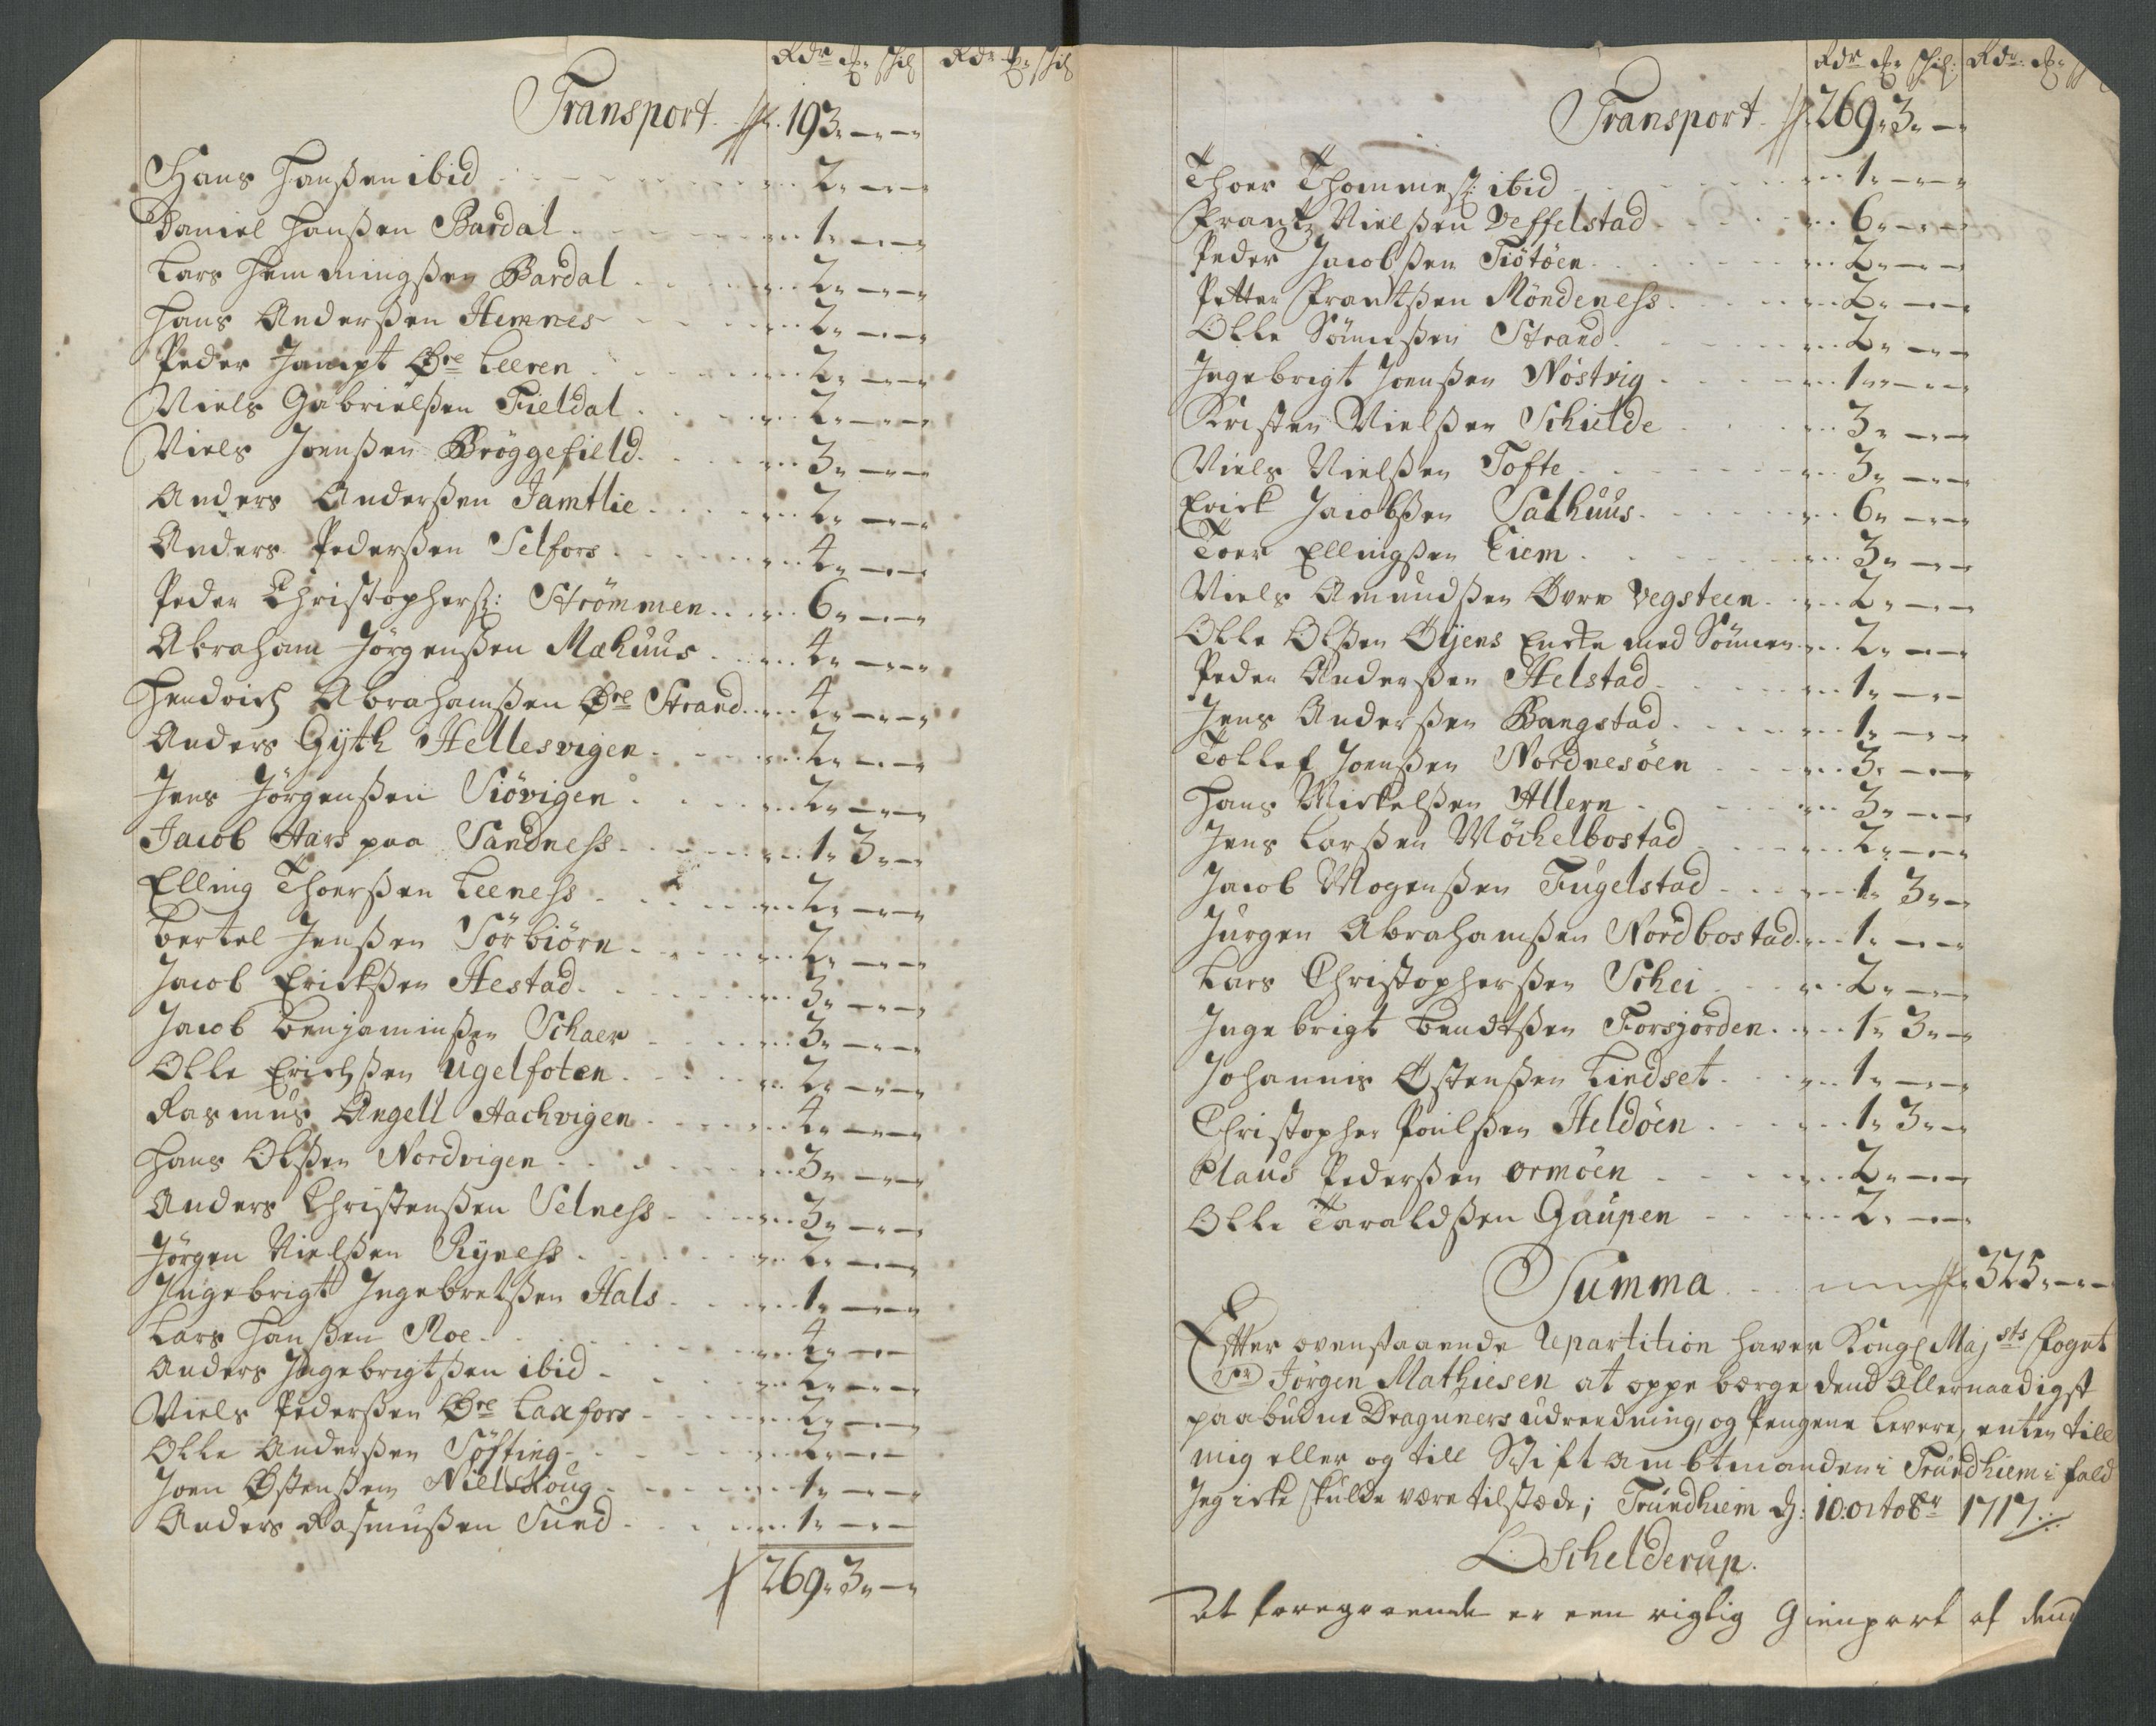 Rdr mk skil Rdr mk skil
Transport 193 " — " — "
Hans Hanßen ibid 2 " — " — "
Daniel Hanßen Bardal 1 " — " — "
Lars Hemmingßen Bardal 2 " — " — "
Hans Anderßen Hemnes 2 " — " — "
Peder Jampt Øre Leeren 2 " — " — "
Niels Gabrielßen Fieldal 2 " — " — "
Niels Joenßen Bröggefield 3 " — " — "
Anders Anderßen Jamtlie 2 " — " — "
Anders Pederßen Selfors 4 " — " — "
Peder Christophers: Strömmen 6 " — " — "
Abraham Jörgenßen Mæhuus 4 " — " — "
Hendrich Abrahamßen Øre Strand 4 " — " — "
Anders Gÿth Hellesvigen 2 " — " — "
Jens Jörgenßen Siövigen 2 " — " — "
Jacob Aars paa Sandness 1 " 3 " — "
Elling Thoerßen Leeness 2 " — " — "
Bertel Jenßen Sörbiörn 2 " — " — "
Jacob Erickßen Hestad 3 " — " — "
Jacob Benjaminßen Schaer 3 " — " — "
Olle Erichßen Ugelfoten 2 " — " — "
Rasmus Angell Aachvigen 4 " — " — "
Hans Olßen Nordvigen 3 " — " — "
Anders Christenßen Selness 3 " — " — "
Jörgen Nielßen Rÿness 2 " — " — "
Ingebrigt Ingebretßen Hals 1 " — " — "
Lars Hanßen Moe 4 " — " — "
Anders Ingebrigtßen ibid 2 " — " — "
Niels Pederßen Øre Laxfors 2 " — " — "
Olle Anderßen Söfting 2 " — " — "
Joen Østenßen Nielskoug 1 " — " — "
Anders Rasmußen Sund 1 " — " — "
269 " 3 " — "
Rdr mk skil: Rdr: mk
Transport 269 " 3 " — "
Thoer Thommes: ibid 1 " — " — "
Frantz Nielßen Veffelstad 6 " — " — "
Peder Jacobßen Tiötöen 2 " — " — "
Petter Frantßen Möndeness 2 " — " — "
Olle Sönneßen Strand 2 " — " — "
Ingebrigt Joenßen Nöstvig 1 " — " — "
Kristen Nielßen Schielde 3 " — " — "
Niels Nielßen Tofte 3 " — " — "
Erick Jacobßen Salhuus 6 " — " — "
Toer Ellingßen Eiem 3 " — " — "
Niels Amundßen Øvre Vegsteen 2 " — " — "
Olle Olßen Øÿens Encke med Sönnen 2 " — " — "
Peder Anderßen Helstad 1 " — " — "
Jens Anderßen Bangstad 1 " — " — "
Tollef Joenßen Nordnesöen 3 " — " — "
Hans Mickelßen Allern 3 " — " — "
Jens Larßen Möchelbostad 2 " — " — "
Jacob Mogenßen Fugelstad 1 " 3 " — "
Jurgen Abrahamßen Nordbostad 1 " — " — "
Lars Christopherßen Schei 2 " — " — "
Ingebrigt Bendtßen Forsjorden 1 " 3 " — "
Johannis Østenßen Lindset 1 " — " — "
Christopher Poulßen Heldöen 1 " 3 " — "
Claus Pederßen Ormöen 2 " — " — "
Olle Taraldßen Gaupen 2 " — " — "
Summa 325 " — " —
Efter ovenstaaende Repartition haver Kongl Majsts Foget
Sr Jörgen Mathiesen at oppebærge dend Allernaadigst
paabudne Draguners udreedning, og Pengene levere, enten till
mig eller og till Stiftambtmanden i Trundhiem i fald
Jeg icke skulde være tilstæde; Trundhiem d: 10 octobr 1717
Schelderup.
At foregaaende er een rigtig Gienpart af dend